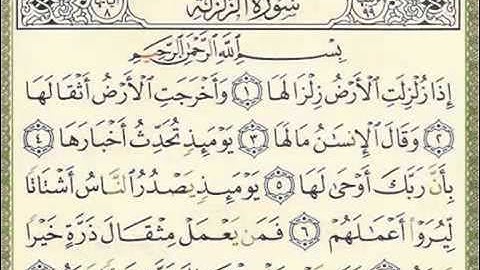 سُورَةُ الزَّلْزَلَةِ
بِسْمِ اللَّهِ الرَّحْمَٰنِ الرَّحِيمِ
إِذَا زُلْزِلَتِ الْأَرْضُ زِلْزَالَهَا ١ وَأَخْرَجَتِ الْأَرْضُ أَثْقَالَهَا
٢ وَقَالَ الْإِنسَٰنُ مَا لَهَا ٣ يَوْمَئِذٍ تُحَدِّثُ أَخْبَارَهَا ٤
بِأَنَّ رَبَّكَ أَوْحَىٰ لَهَا ٥ يَوْمَئِذٍ يَصْدُرُ النَّاسُ أَشْتَاتًا
لِّيُرَوْا أَعْمَٰلَهُمْ ٦ فَمَن يَعْمَلْ مِثْقَالَ ذَرَّةٍ خَيْرًا